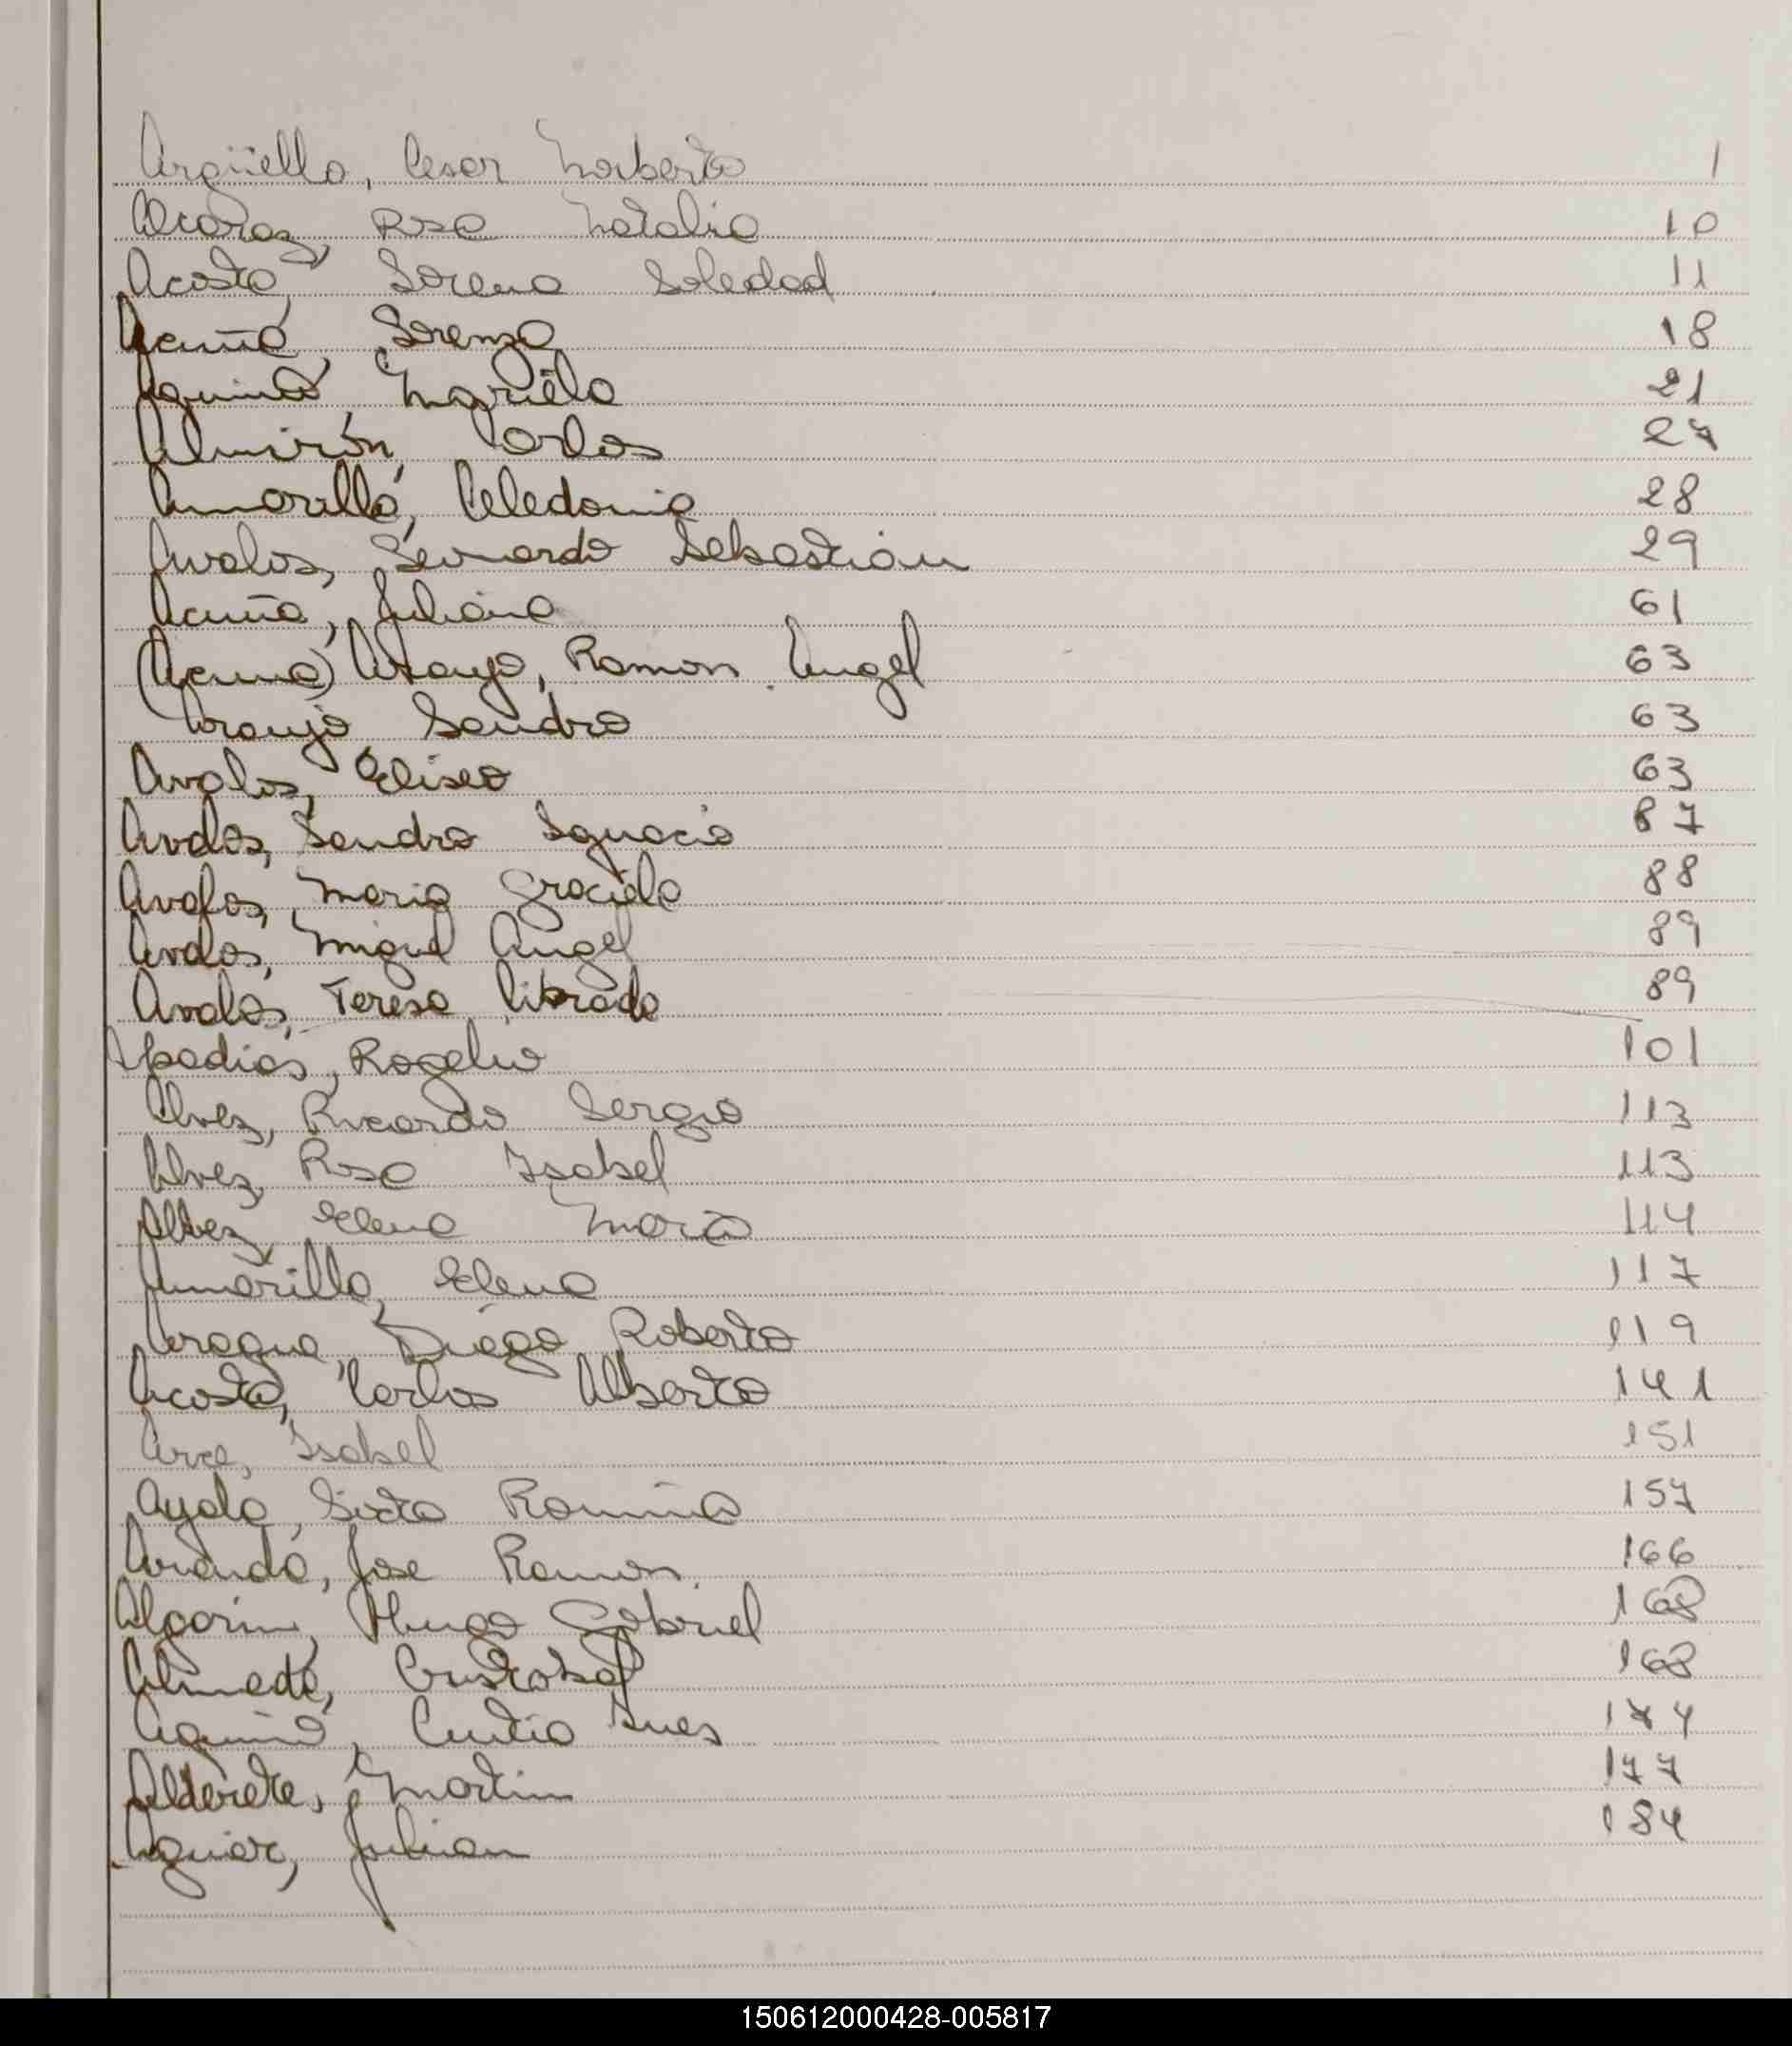 Argüello, Cesar Norberto 1
Alcaraz, Rosa Natalia 10
Acosta, Lorena Soledad 11
Acuña, Lorenzo 18
Aquino, Mariela 21
Almirón, Carlos 27
Amarilla, Celedonia 28
Avalos, Leonardo Sebastián 29
Acuña, Juliana 61
(Acuna) Araujo, Ramon Angel 63
Araujo Sandro 63
Avalos, Eliseo 63
Avalos, Sandro Ignacio 87
Avalos, Maria Graciela 88
Avalos, Miguel Angel 89
Avalos, Teresa Librada 89
Abadias, Rogelio 101
Alvez, Ricardo Sergio 113
Alvez, Rosa Isabel 113
Alvez, Elena Maria 114
Amarilla, Elena 117
Aragua, Diego Roberto 119
Acosta, Carlos Alberto 141
Arce, Isabel 151
Ayala, Sixta Romina 157
Aranda, Jose Ramon 166
Algarin, Hugo Gabriel 168
Almeda, Cristobal 168
Aquino, Cintia Ines 174
Alderete, Martin 177
Aguiar, Julian 184
150612000428-005817